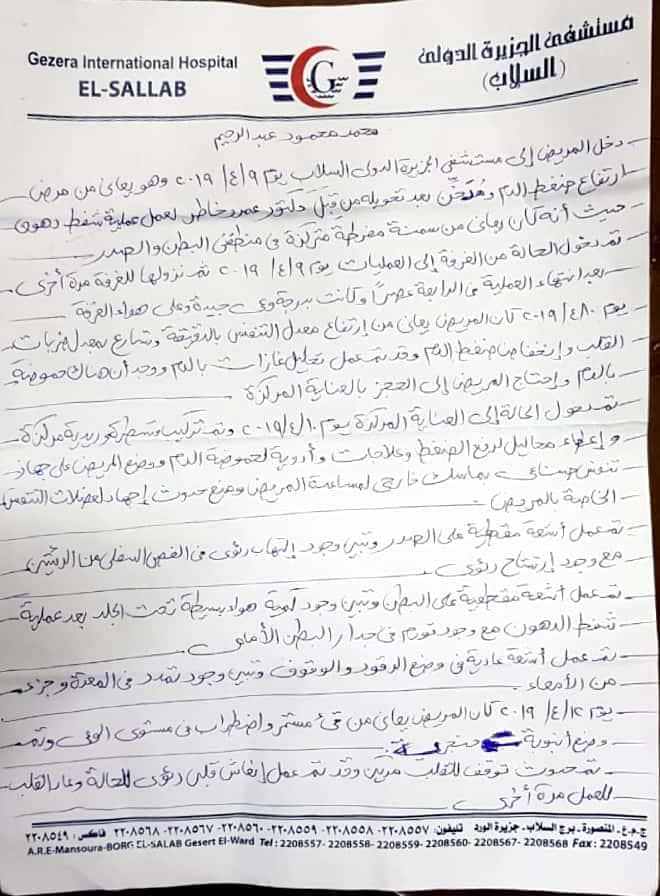 Gezera International Hospital
EL-SALLAB
G
مستشفى الجزيرة الدولى
(السلاب)
محمد محمود عبد الرحيم
دخل المريض إلى مستشفى الجزيرة الدولى السلاب يوم ٢٠١٩/٤/٩ وهو يعانى من مرض
ارتفاع ضغط الدم ومُدخّن بعد تحويله من قِبَل دكتور عمرو خاطر لعمل عملية شفط دهون
حيث أنه كان يعانى من سمنة مفرطة متركزة فى منطقتى البطن والصدر
تم دخول الحالة من الغرفة إلى العمليات يوم ٢٠١٩/٤/٩ تم نزولها للغرفة مرة أخرى.
بعد انتهاء العملية فى الرابعة عصرًا وكانت بدرجة وعى جيدة وعلى هواء الغرفة
يوم ٢٠١٩/٤/١٠ كان المريض يعانى من إرتفاع معدل التنفس بالدقيقة وتسارع بمعدل ضربات
القلب وإنخفاض ضغط الدم وقد تم عمل تحليل غازات بالدم ووجد أن هناك حموضة
بالدم وإحتاج المريض إلى الحجز بالعناية المركزة
تم دخول الحالة إلى العناية المركزة يوم ٢٠١٩/٤/١٠ وتم تركيب قسطرة وريدية مركزة
وإعطاء محاليل لرفع الضغط وعلاجات وأدوية لحموضة الدم ووضع المريض على جهاز
تنفس صناعى بماسك خارجى لمساعدة المريض ومنع حدوث إجهاد لعضلات التنفس
الخاصة بالمريض.
تم عمل أشعة مقطعية على الصدر وتبين وجود إلتهاب رئوى فى الفص السفلى من الرئتين
مع وجود إرتشاح رئوى.
تم عمل أشعة مقطعية على البطن وتبين وجود كمية هواء بسيطة تحت الجلد بعد عملية
شفط الدهون مع وجود تورم فى جدار البطن الأمامى.
تم عمل أشعة عادية فى وضع الرقود والوقوف وتبين وجود تمدد فى المعدة وجزء
من الأمعاء.
يوم ٢٠١٩/٤/١٢ كان المريض يعانى من قئ مستمر واضطراب فى مستوى الوعى وتم
وضع أنبوبة
تم حدوث توقف للقلب مرتين وقد تم عمل إنعاش قلبى رئوى للحالة وعاد القلب
للعمل مرة أخرى
ج.م.ع - المنصورة - برج السلاب - جزيرة الورد تليفون: ٢٢٠٨٥٥٧ - ٢٢٠٨٥٥٨ - ٢٢٠٨٥٥٩ - ٢٢٠٨٥٦٠ - ٢٢٠٨٥٦٧ - ٢٢٠٨٥٦٨ فاكس: ٢٢٠٨٥٤٩
A.R.E-Mansoura-BORG EL-SALAB Gesert El-Ward Tel : 2208557- 2208558- 2208559-2208560- 2208567- 2208568 Fax : 2208549